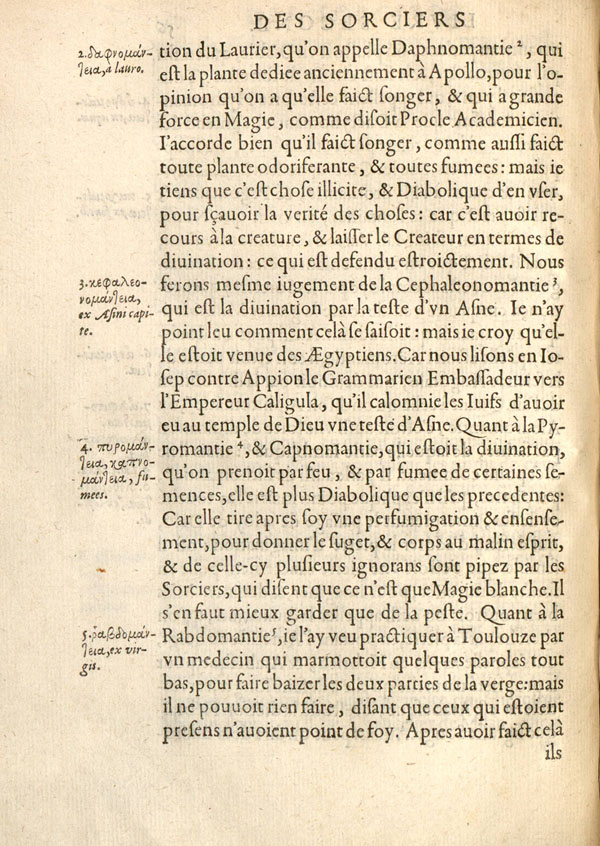 DES SORCIERS
2. δαφνομάντεια, a lauro.
tion du Laurier, qu'on appelle Daphnomantie ², qui
est la plante dediee anciennement à Apollo, pour l'o-
pinion qu'on a qu'elle faict songer, & qui a grande
force en Magie, comme disoit Procle Academicien.
I'accorde bien qu'il faict songer, comme aussi faict
toute plante odoriferante, & toutes fumees: mais ie
tiens que c'est chose illicite, & Diabolique d'en vser,
pour sçauoir la verité des choses: car c'est auoir re-
cours à la creature, & laisser le Createur en termes de
diuination: ce qui est defendu estroictement. Nous
3. κεφαλεο-
νομάντεια,
ex Asini capi-
te.
ferons mesme iugement de la Cephaleonomantie ³,
qui est la diuination par la teste d'vn Asne. Ie n'ay
point leu comment celà se faisoit: mais ie croy qu'el-
le estoit venue des Ægyptiens. Car nous lisons en Io-
sep contre Appion le Grammarien Embassadeur vers
l'Empereur Caligula, qu'il calomnie les Iuifs d'auoir
eu au temple de Dieu vne teste d'Asne. Quant à la Py-
4. πυρομάν-
τεια, καπνο-
μάντεια, fu-
mees.
romantie ⁴, & Capnomantie, qui estoit la diuination,
qu'on prenoit par feu, & par fumee de certaines se-
mences, elle est plus Diabolique que les precedentes:
Car elle tire apres soy vne perfumigation & ensense-
ment, pour donner le suget, & corps au malin esprit,
& de celle-cy plusieurs ignorans sont pipez par les
Sorciers, qui disent que ce n'est que Magie blanche. Il
s'en faut mieux garder que de la peste. Quant à la
5. ῥαβδομάν-
τεια, ex vir-
gis.
Rabdomantie ⁵, ie l'ay veu practiquer à Toulouze par
vn medecin qui marmottoit quelques paroles tout
bas, pour faire baizer les deux parties de la verge: mais
il ne pouuoit rien faire, disant que ceux qui estoient
presens n'auoient point de foy. Apres auoir faict celà
ils